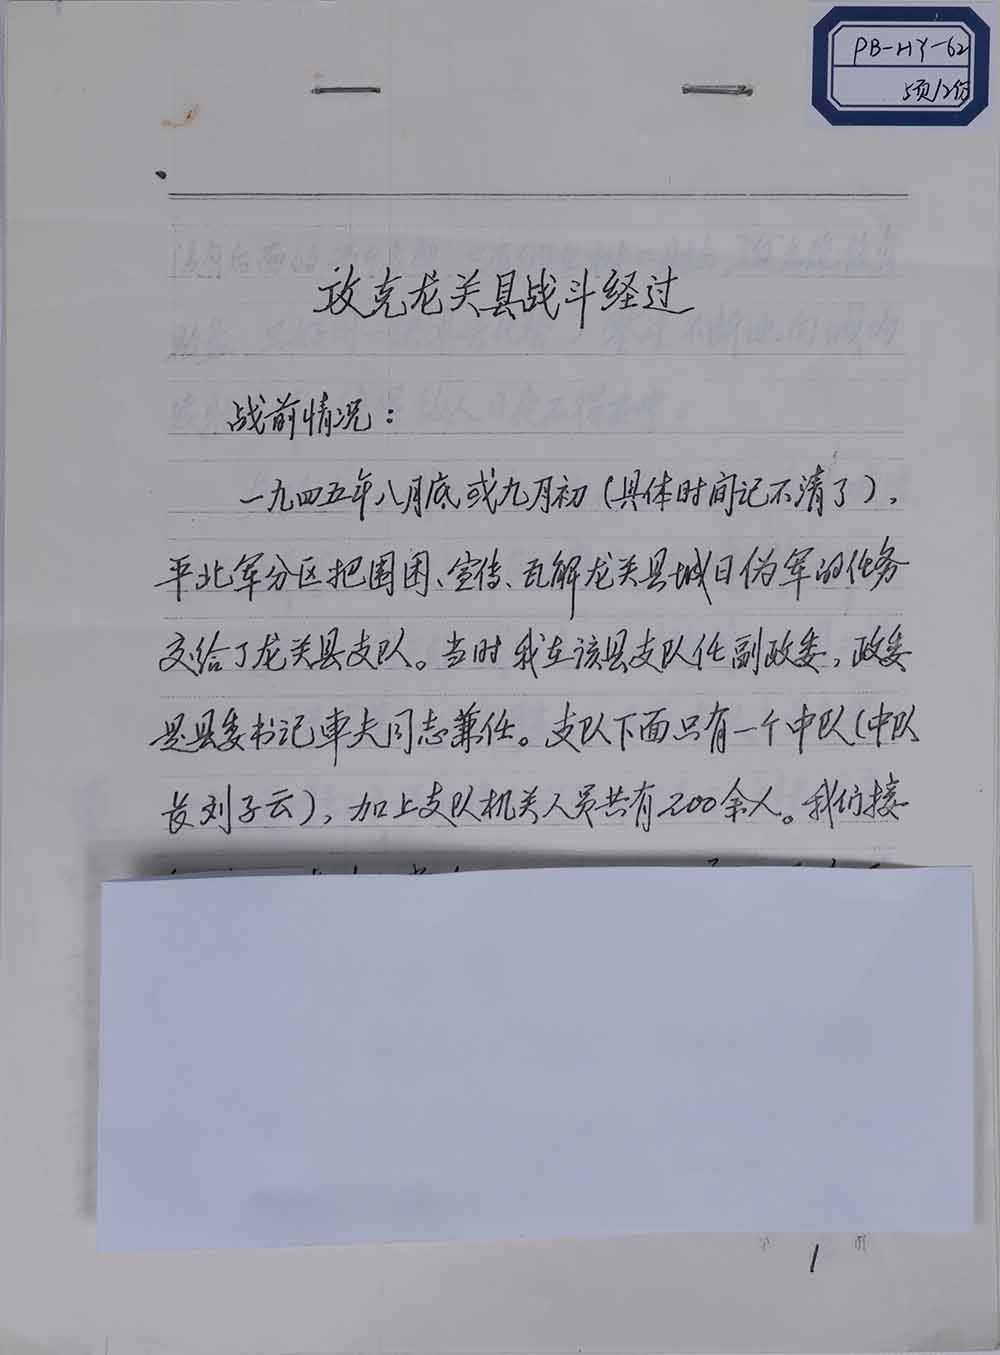 PB-HY-62
5页/2份
攻克龙关县战斗经过
战前情况：
一九四五年八月底或九月初（具体时间记不清了），
平北军分区把围困、宣传、瓦解龙关县城日伪军的任务
交给了龙关县支队。当时我在该县支队任副政委，政委
是县委书记車夫同志兼任。支队下面只有一个中队（中队
长刘子云），加上支队机关人员共有200余人。我们接
1